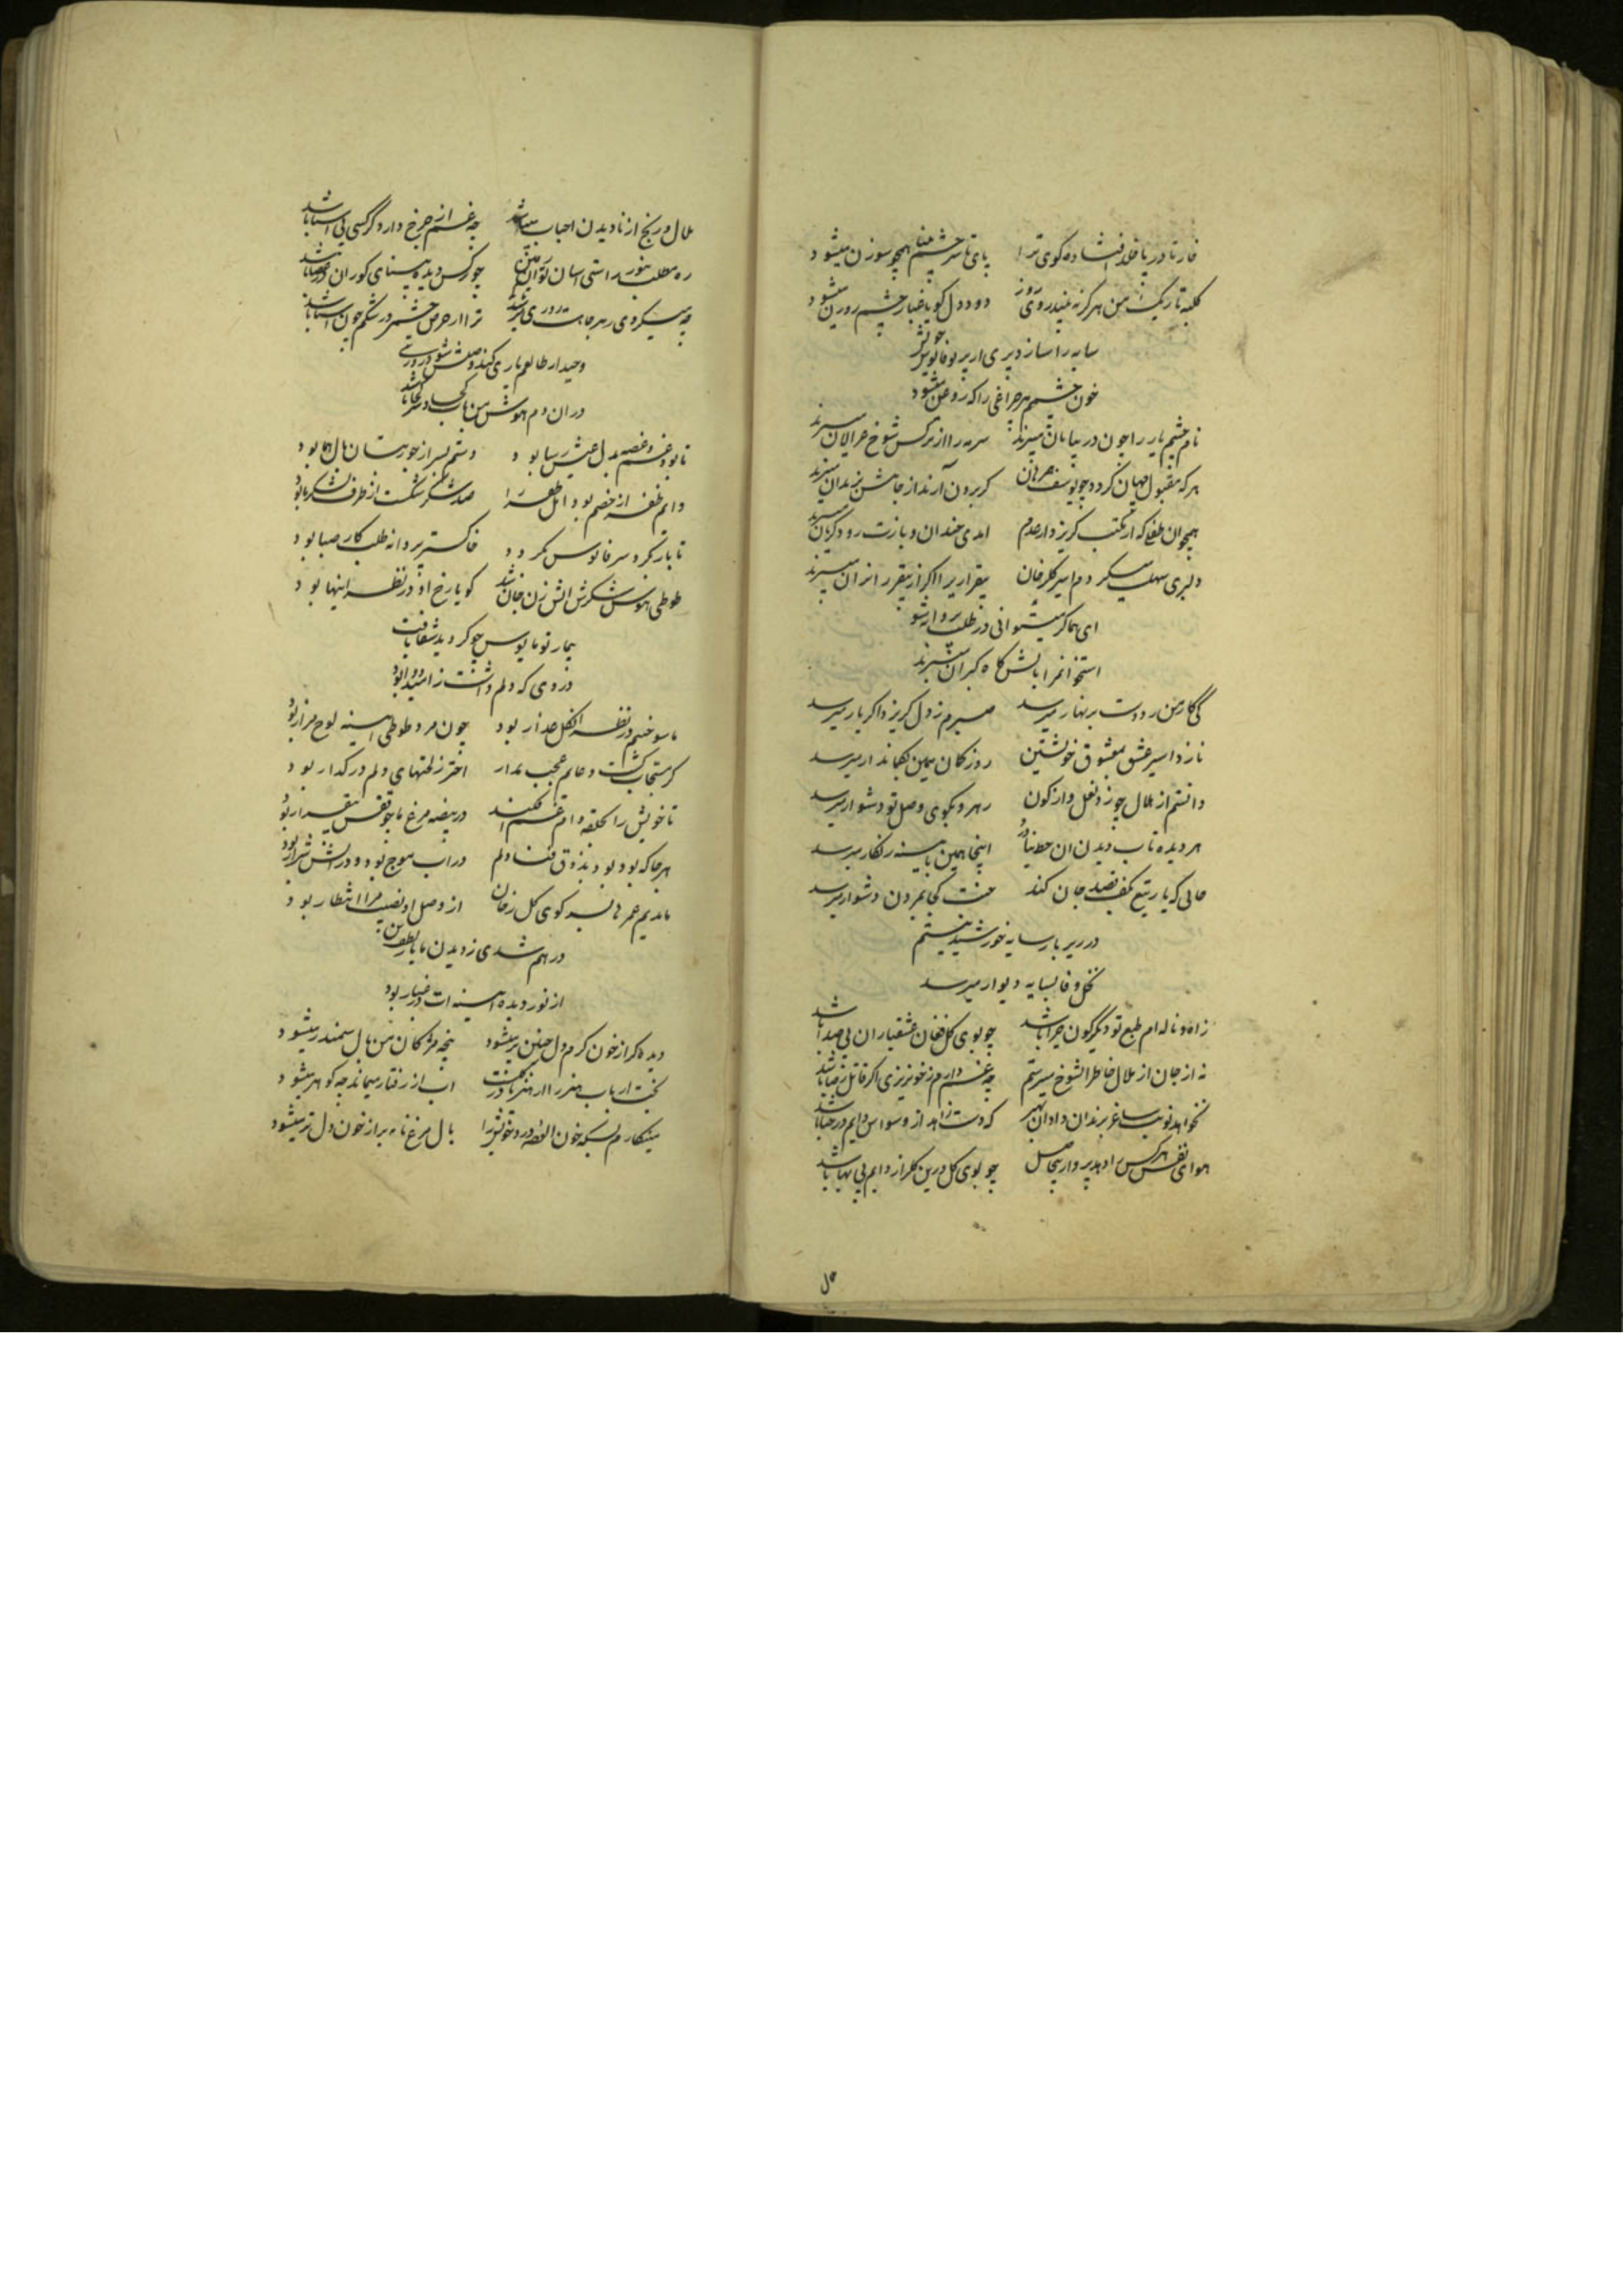 خار تا در پا خلد افتاده کوی ترا پای تا سر چشم بینا همچو سوزن میشود
کلبه تاریک من هرگز نبیند روی روز دود دل کویا غبار چشم روزن میشود
سایه را سازد پری از پرتو فانوس خویش
خون چشم هر چراغی را که روغن میشود
نام چشم یار را چون در بیابان میبرند سرمه را از نرکس شوخ غزالان میبرند
هر که مقبول جهان کردد چو یوسف هر زمان کر برون آرند از چاهش بزندان میبرند
همچو آن طفلی که از مکتب کریزد از عدم آمدی خندان و بازت رو کریان میبرند
دلبری سهلست میکردم اسیر کلرخان بیقراری را اکر از بیقراران میبرند
ای هما کر میتوانی در طلب پروانه شو
استخوانم را بآتش کاه کبران میبرند
کی کار من ز دوست بزنهار میرسد صبرم ز دل کریزد اکر یار میرسد
نازد اسیر عشق بمعشوق خویشتن روز کمان همین بکماندار میرسد
دانستم از هلال چو زد نعل واژکون رهرو بکوی وصل تو دشوار میرسد
هر دیده تاب دیدن آن خط نیاورد اینجا همین بآینه زنکار میرسد
حالی که یار تیغ بکف قصد جان کند منت کجا بمردن دشوار میرسد
در زیر بار سایه خورشید نیستم
نخل وفا بسایه دیوار میرسد
ز آه و ناله ام طبع تو دیکرکون چرا باشد چو بوی کل فغان عشقبازان بی صدا باشد
نه از جان از ملال خاطر آن شوخ میترسم چه غم دارم ز خونریزی اکر قاتل رضا باشد
نخواهد نوبت ساغر برندان دادن که دست زاهد از وسواس دایم در حنا باشد
هوای نفس هر کس را دهد پرواز بیحاصل چو بوی کل درین کلزار دایم بی بها باشد
ملال و رنج از نادیدن احباب میباشد چه غم از چرخ دارد کر کسی بی آشنا باشد
ره مطلب بنور راستی آسان توان رفتن چو کس دیده بینای کوران در عصا باشد
چه میکردی بهر جانب روزی ترا از حرص چشم در شکم چون آسیا باشد
وحید ار طالعم یاری کند وصلش شود روزی
در آن دم هوش من یارب کجا و سر کجا باشد
تا بود غم و غصه بدل عیش رسا بود دستم بسر از جور بتان بال هما بود
دایم ظفر از خصم بود اهل ظفر را صد شکر شکست از طرف لشکر ما بود
تا باز نکرد سر فانوس نکردد خاکستر پروانه طلبکار صبا بود
طوطی هوس شکرش آتش زن جان شد کویا رخ او در نظر آینها بود
بیمار تو مایوس چو کردید شفا یافت
دردی که دلم داشت ز امید دوا بود
ما سوختیم در نظر آن کل عذار بود چون مرد طوطی آینه لوح مزار بود
کر مستجاب کشت دعایم عجب مدار اختر ز لختهای دلم در کدار بود
تا خویش را بحلقه دام غم افکند در بیضه مرغ ما چو قفس بیقرار بود
هر جا که بود بود بذوق فنا دلم در آب موج بود و در آتش شرار بود
ماندیم عمرها بسر کوی کل رخان از وصل او نصیب مرا انتظار بود
در هم شدی ز دیدن ما با لطف
از نور دیده آینه ات در غبار بود
دیده کر از خون کرم دل چنین تر میشود پنجه مژکان من بال سمندر میشود
بخت ارباب هنر را از هنر نا آب از رفتار میماند چو کوهر میشود
مینکارم بسکه خون آلوده درد خویش را بال مرغ نامه بر از خون دل تر میشود